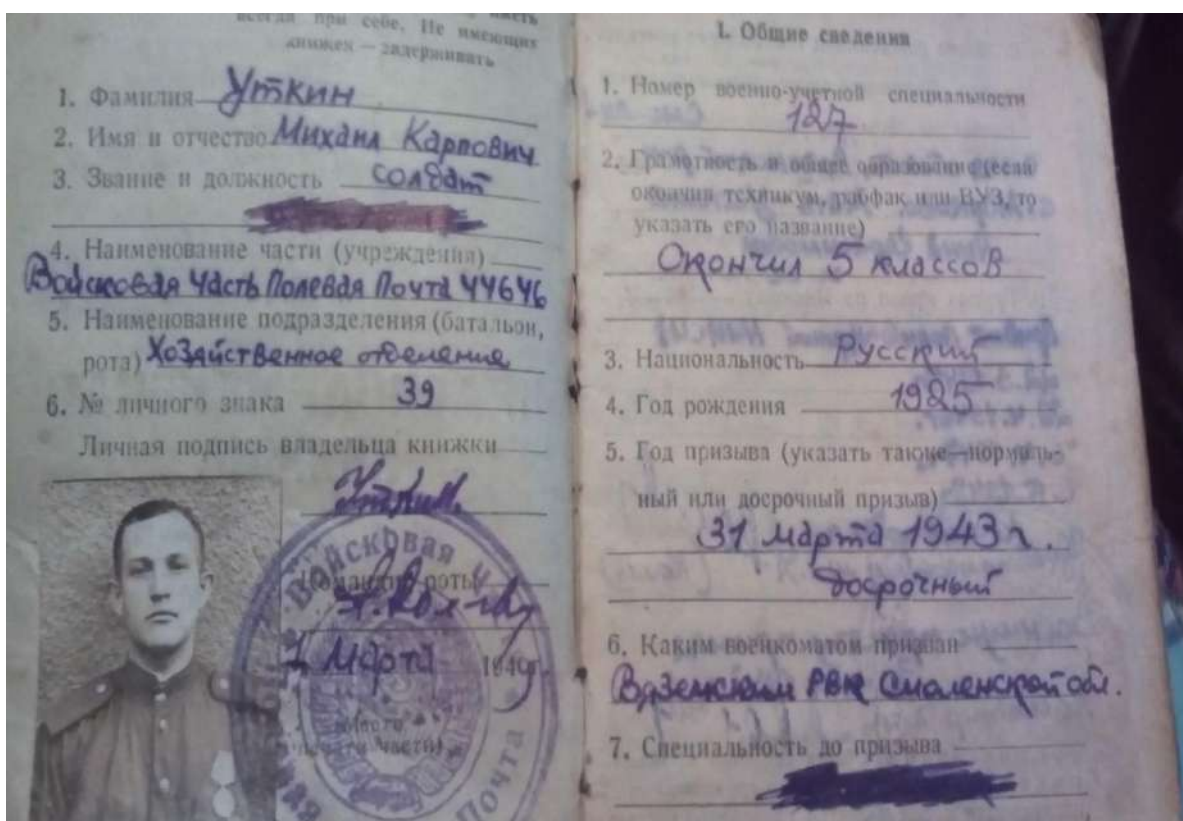 всегда при себе. Не имеющих
книжек — задерживать
1. Фамилия Уткин
2. Имя и отчество Михаил Карпович
3. Звание и должность солдат
4. Наименование части (учреждения)
Войсковая Часть Полевая Почта 44646
5. Наименование подразделения (батальон,
рота) Хозяйственное отделение
6. № личного знака 39
Личная подпись владельца книжки
Командир роты
Марта 194
Место
части)
Войсковая
Почта
I. Общие сведения
1. Номер военно-учетной специальности
127
2. Грамотность и общее образование (если
окончил техникум, рабфак или ВУЗ, то
указать его название)
Окончил 5 классов
3. Национальность Русский
4. Год рождения 1925
5. Год призыва (указать также—нормаль-
ный или досрочный призыв)
31 марта 1943 г.
досрочный
6. Каким военкоматом призван
Вяземским РВК Смоленской обл.
7. Специальность до призыва